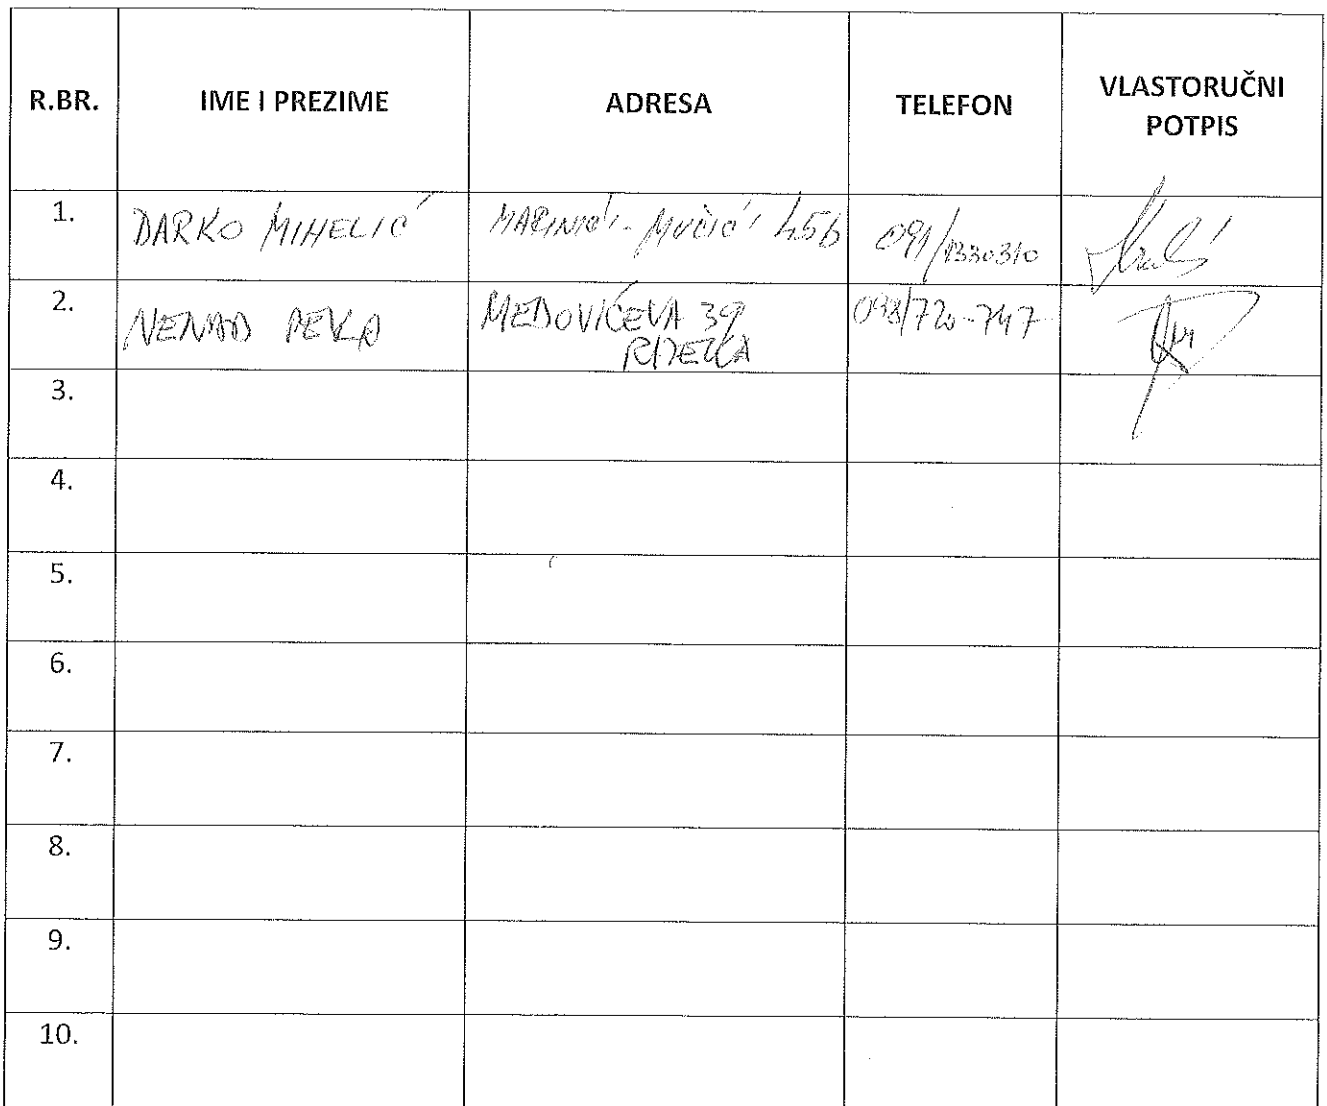 R.BR. IME I PREZIME ADRESA TELEFON VLASTORUČNI
POTPIS
1. DARKO MIHELIĆ MARINIĆI - MUČIĆI 45b 091/1330310
2. NENAD PEKA MEDOVIĆEVA 39 098/720-747
RIJEKA
3.
4.
5.
6.
7.
8.
9.
10.